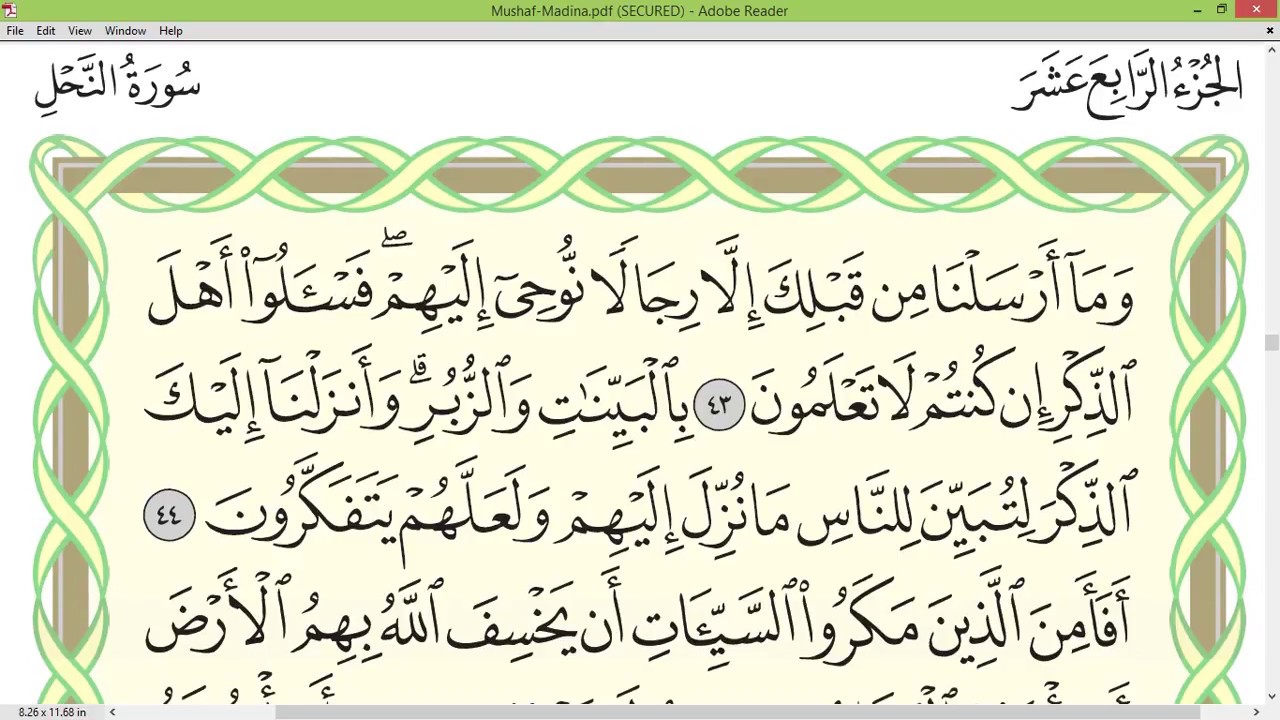 Mushaf-Madina.pdf (SECURED) - Adobe Reader
File Edit View Window Help
الجُزْءُ الرَّابِعَ عَشَرَ
سُورَةُ النَّحْلِ
وَمَآ أَرْسَلْنَا مِن قَبْلِكَ إِلَّا رِجَالًا نُّوحِىٓ إِلَيْهِمْ ۖ فَسْـَٔلُوٓا۟ أَهْلَ
ٱلذِّكْرِ إِن كُنتُمْ لَا تَعْلَمُونَ ٤٣ بِٱلْبَيِّنَـٰتِ وَٱلزُّبُرِ ۗ وَأَنزَلْنَآ إِلَيْكَ
ٱلذِّكْرَ لِتُبَيِّنَ لِلنَّاسِ مَا نُزِّلَ إِلَيْهِمْ وَلَعَلَّهُمْ يَتَفَكَّرُونَ ٤٤
أَفَأَمِنَ ٱلَّذِينَ مَكَرُوا۟ ٱلسَّيِّـَٔاتِ أَن يَخْسِفَ ٱللَّهُ بِهِمُ ٱلْأَرْضَ
8.26 x 11.68 in